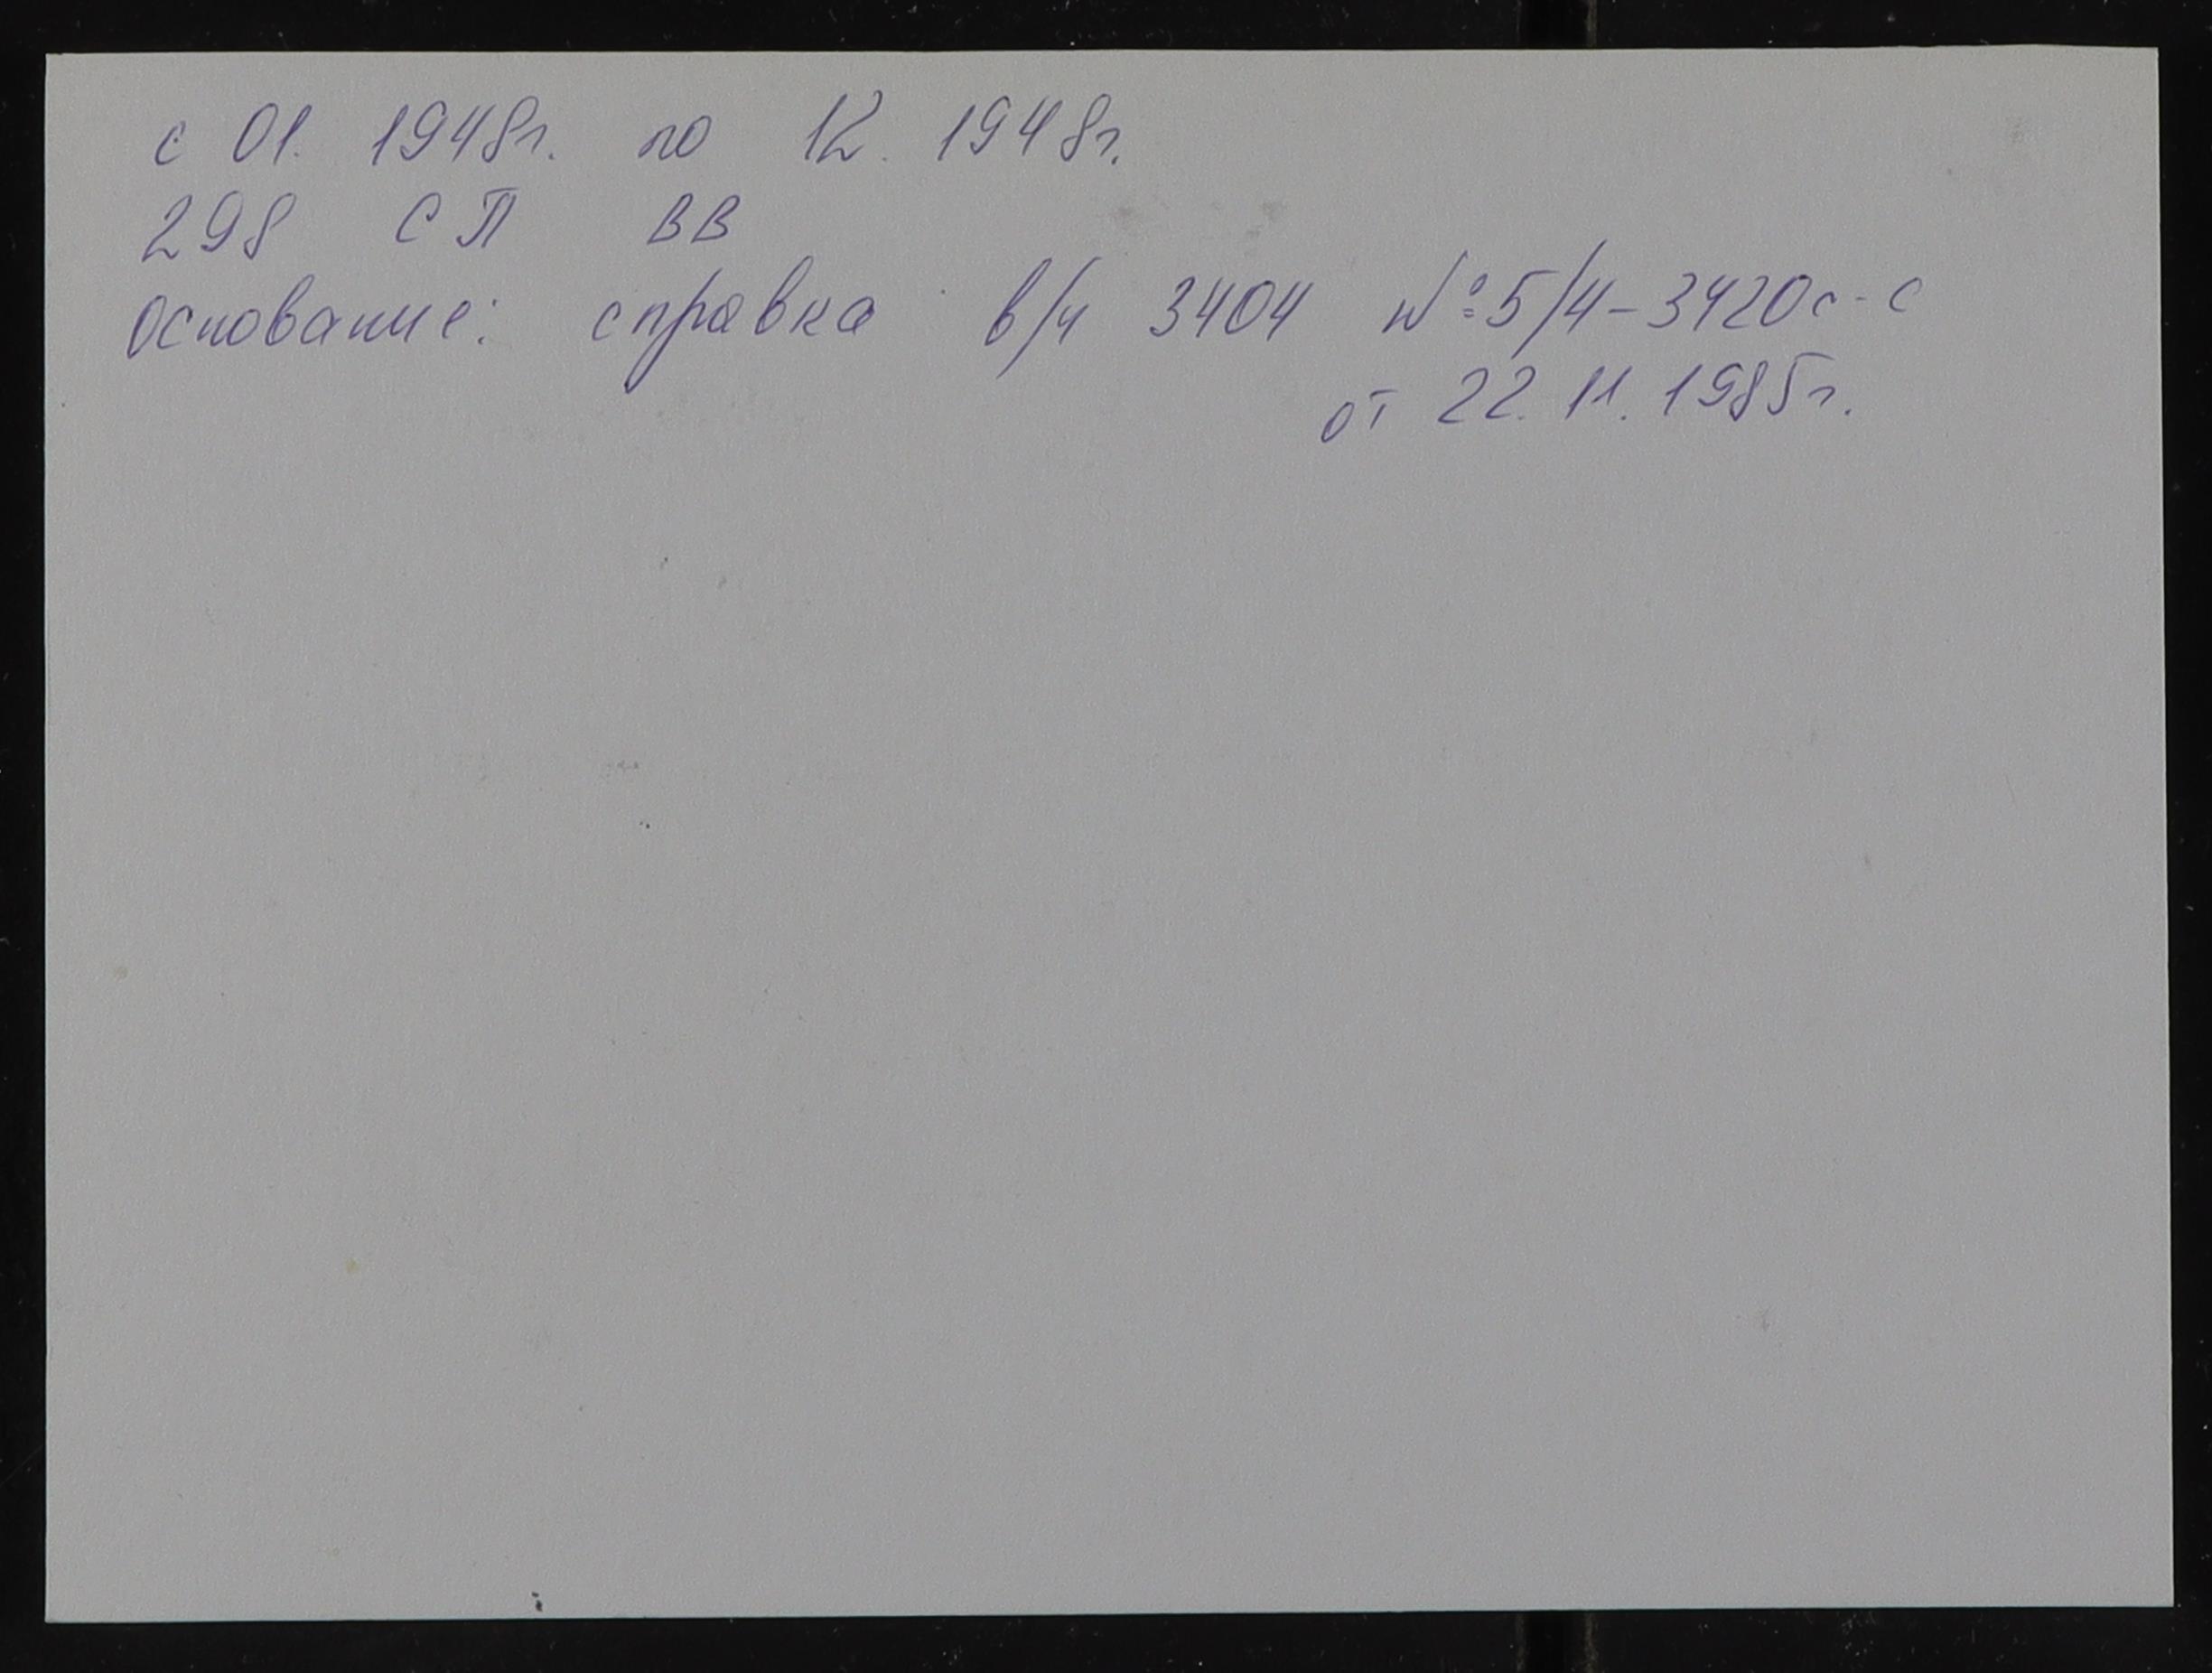 с 01. 1948г. по 12. 1948г.
298 СП ВВ
Основание: справка в/ч 3404 №5/4-3420с-с
от 22. 11. 1985г.